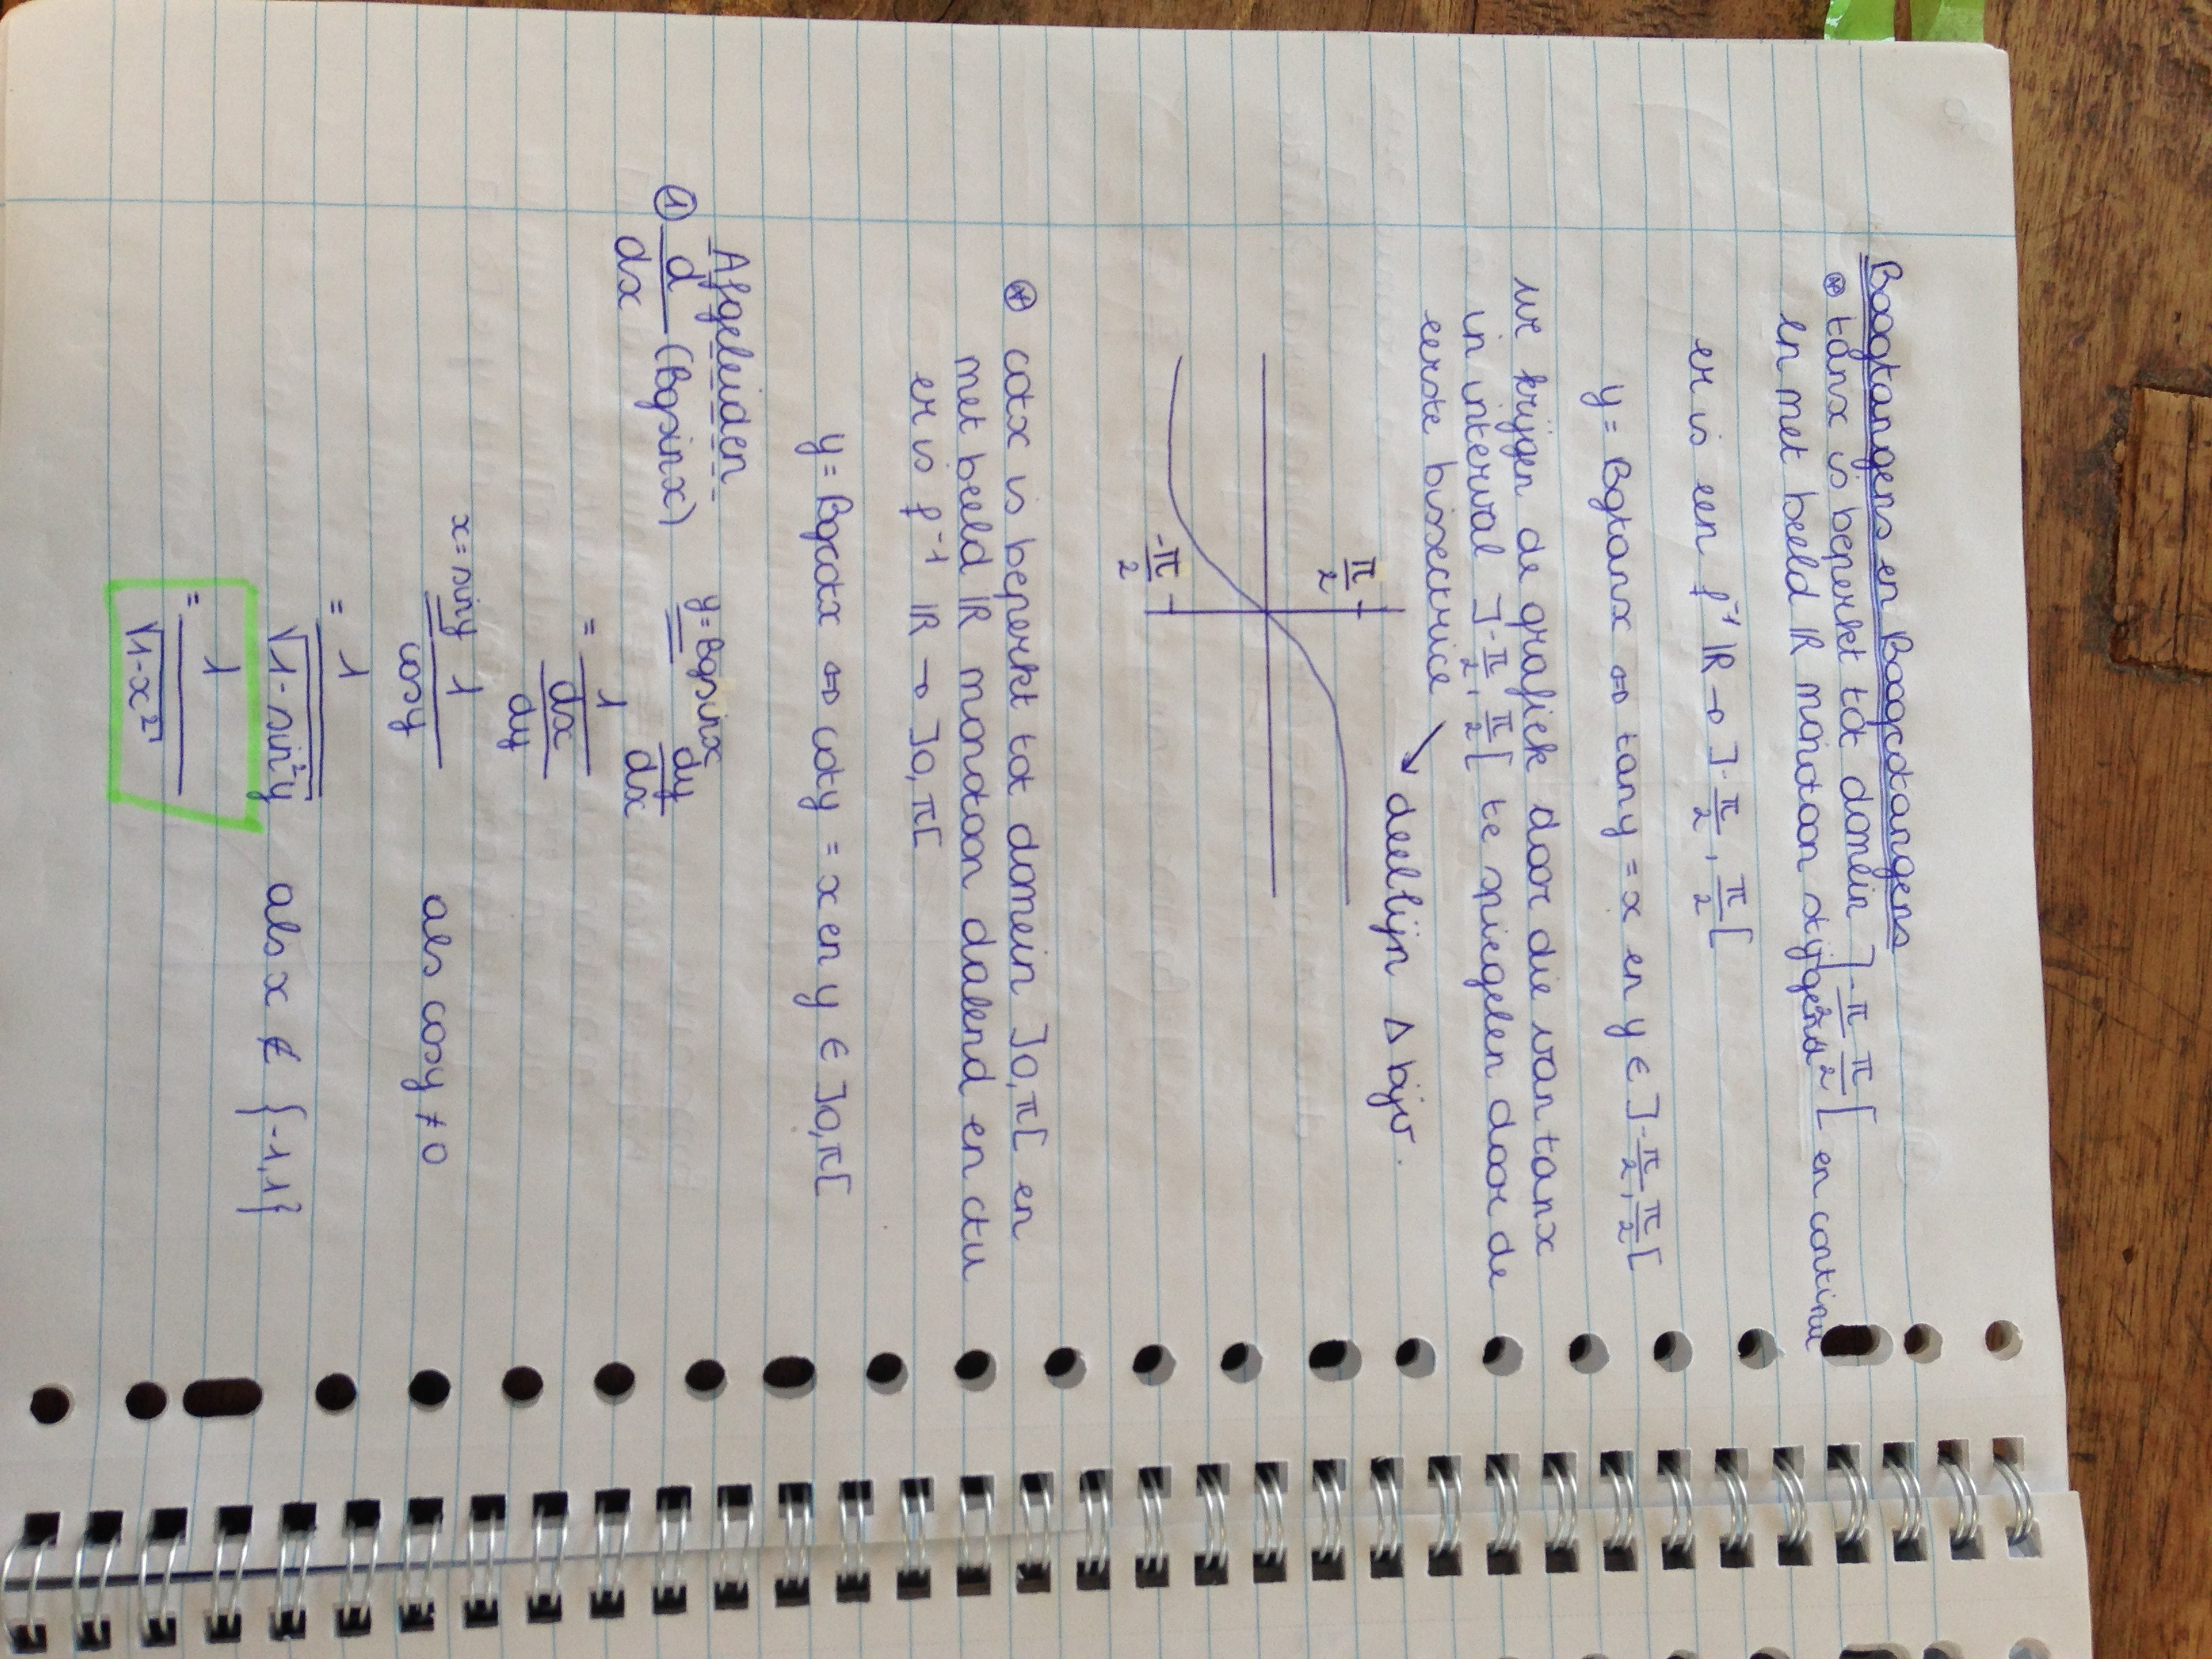 Boogtangens en Boogcotangens
⊛ tanx is beperkt tot domein ]-π/2 π/2[
en met beeld ℝ monotoon stijgend en continu
er is een f⁻¹ ℝ → ]-π/2, π/2[
y = Bgtanx ⇔ tany = x en y ∈ ]-π/2, π/2[
we krijgen de grafiek door die van tanx
in interval ]-π/2, π/2[ te spiegelen door de
eerste bissectrice ↘
deellijn Δ bijv.
π/2
-π/2
⊛ cotx is beperkt tot domein ]0,π[ en
met beeld ℝ monotoon dalend en ctu
er is f⁻¹ ℝ → ]0,π[
y = Bgcotx ⇔ coty = x en y ∈ ]0,π[
Afgeleiden
① d/dx (Bgsinx) y=Bgsinx = dy/dx
= 1/(dx/dy)
x=siny = 1/cosy als cosy ≠ 0
= 1/√(1-sin²y) als x ∉ {-1,1}
= 1/√(1-x²)